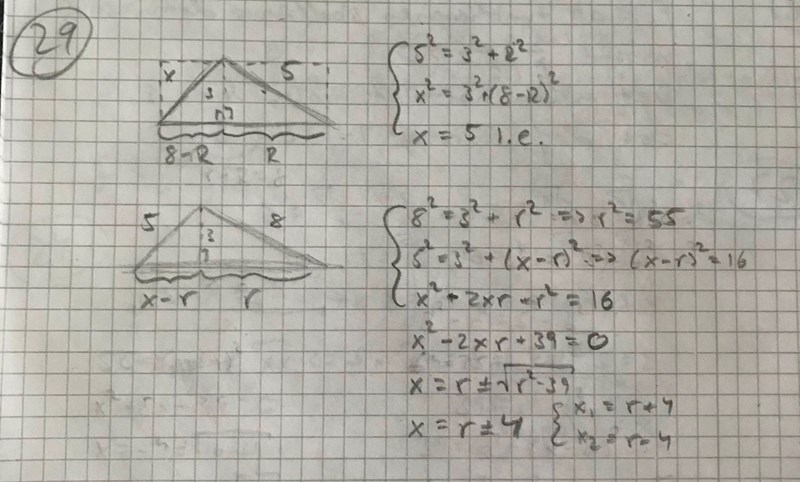 29
x 5
3
8-R R
5² = 3² + R²
x² = 3² + (8-R)²
x = 5 l.e.
5 8
3
x-r r
8² = 3² + r² => r² = 55
5² = 3² + (x-r)² => (x-r)² = 16
x² - 2xr + r² = 16
x² - 2xr + 39 = 0
x = r ± √r²-39
x = r ± 4 { x₁ = r + 4
x₂ = r - 4